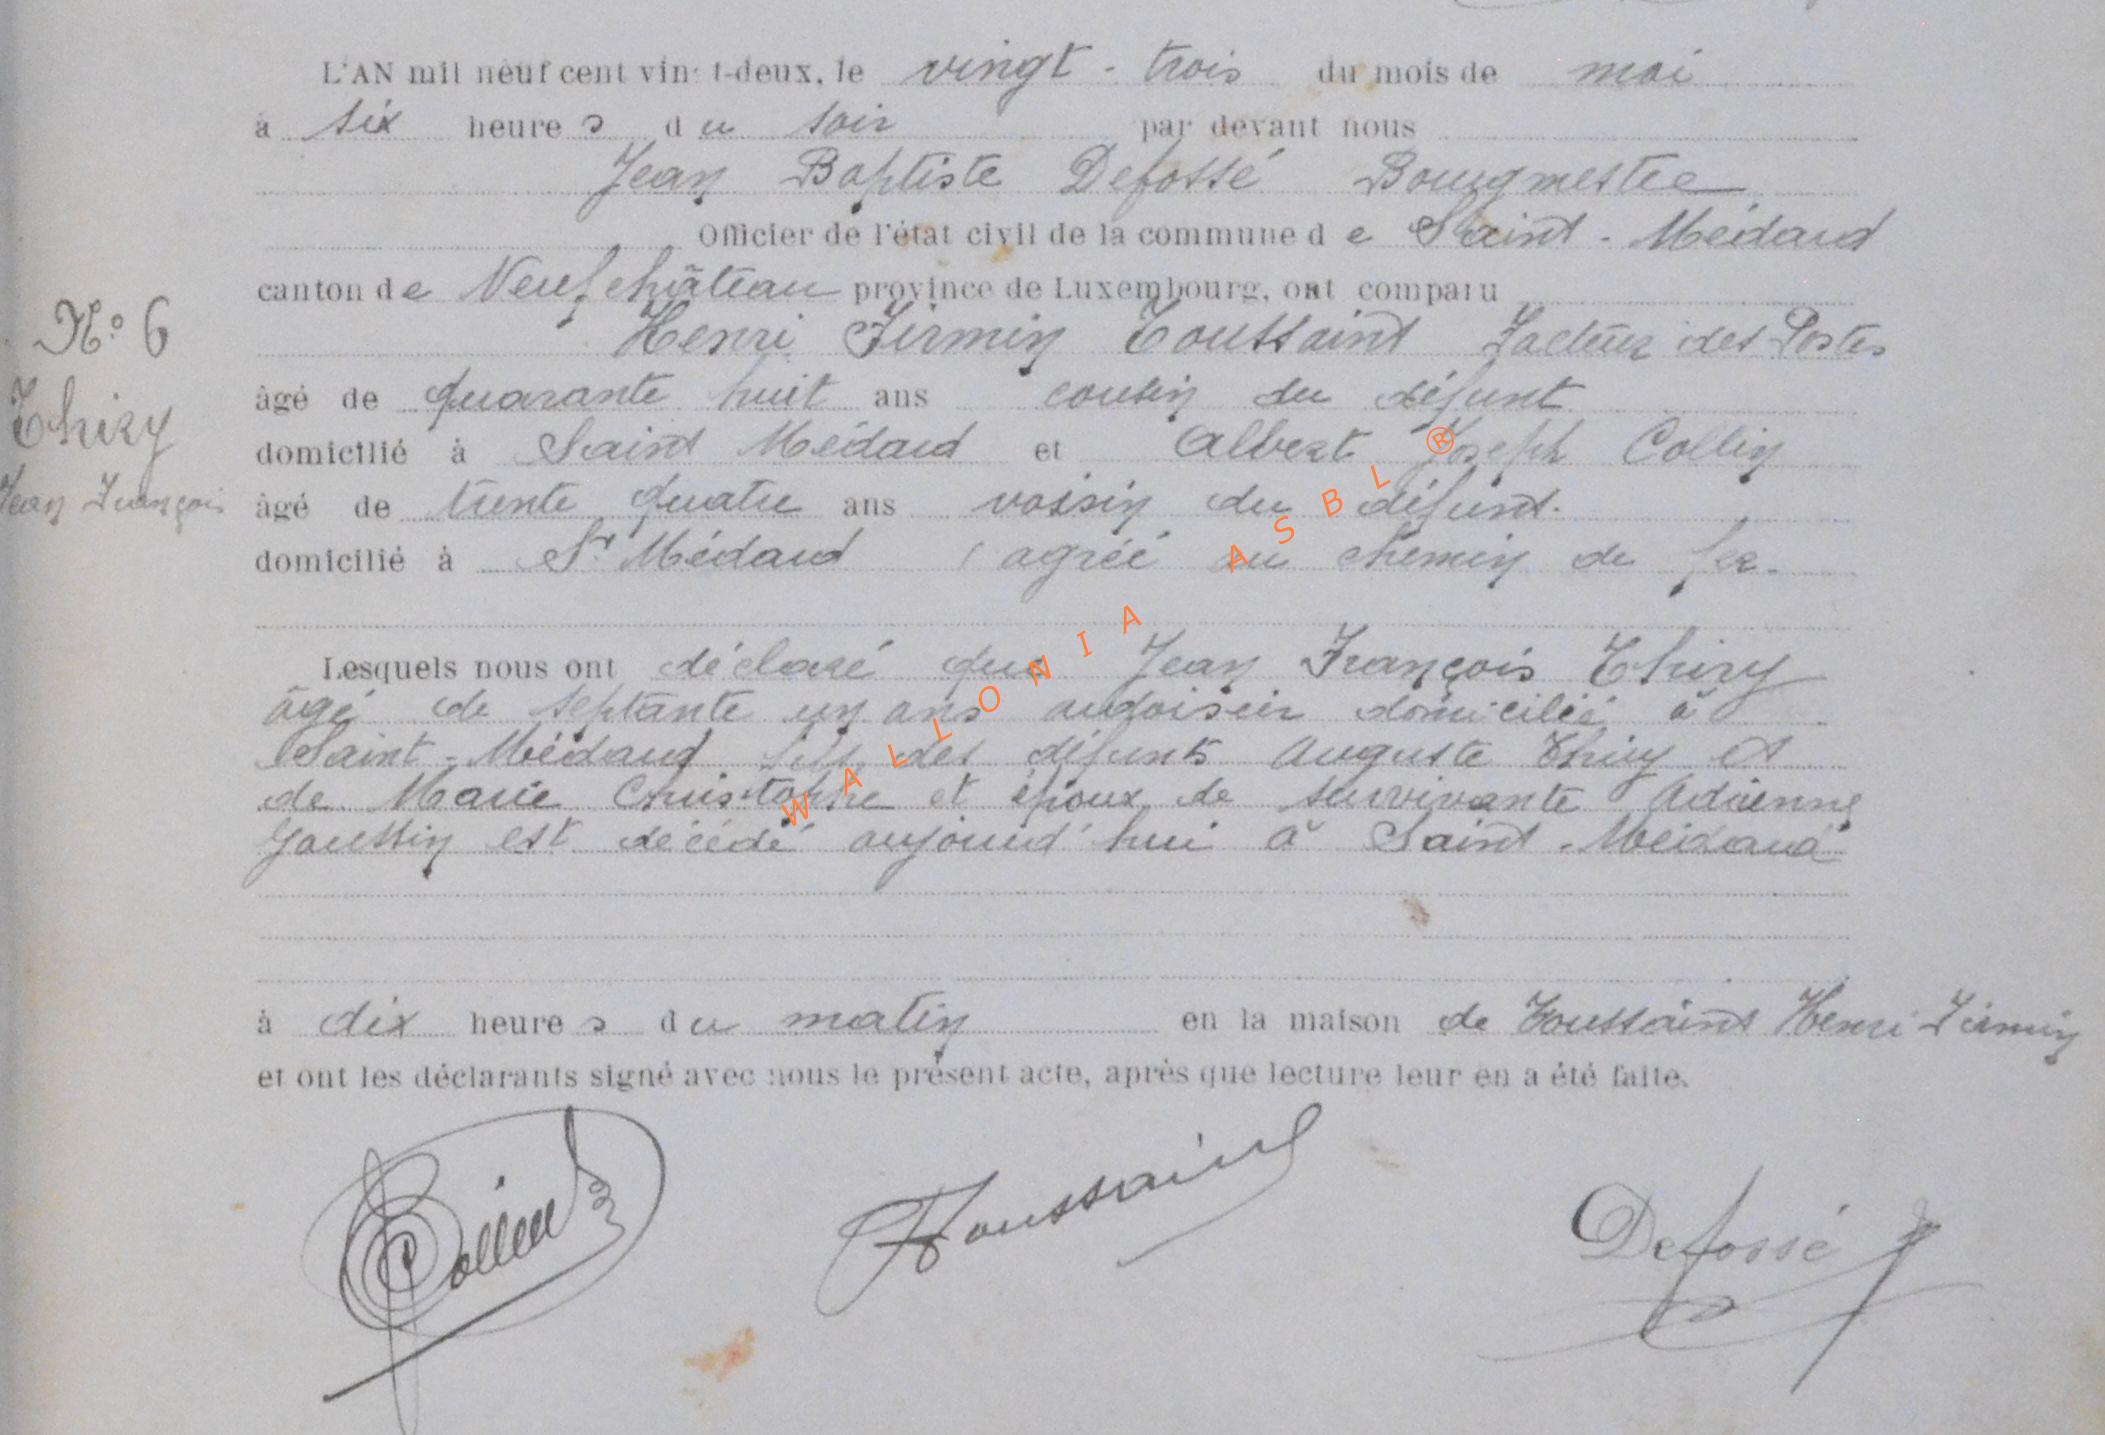 L'AN mil neuf cent vingt-deux, le vingt-trois du mois de mai
à six heures du soir par devant nous
Jean Baptiste Defossé Bourgmestre
Officier de l'état civil de la commune de Saint-Médard
canton de Neufchâteau province de Luxembourg, ont comparu
Henri Firmin Toussaint Facteur des Postes
N° 6
âgé de quarante huit ans cousin du défunt
Thiry
domicilié à Saint Médard et Albert Joseph Collin
Jean François
âgé de trente quatre ans voisin du défunt.
domicilié à St Médard agréé au chemin de fer.
Lesquels nous ont déclaré que Jean François Thiry
âgé de septante un ans ardoisier domicilié à
Saint-Médard fils des défunts Auguste Thiry et
de Marie Christophe et époux de survivante Adrienne
Goussin est décédé aujourd'hui à Saint-Médard
à dix heures du matin en la maison de Toussaint Henri Firmin
et ont les déclarants signé avec nous le présent acte, après que lecture leur en a été faite.
Collin Toussaint Defossé
WALLONIA ASBL ®